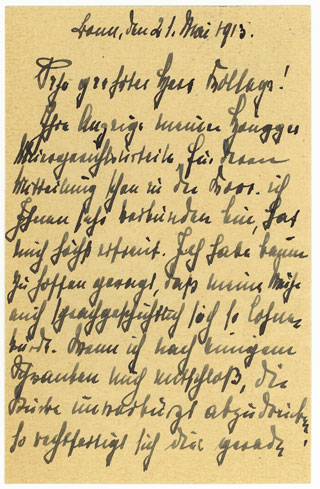 Bonn, den 21. Mai 1913.
Sehr geehrter Herr Kollege!
Ihre Anzeige meiner Höngger
Meiergerichtsurteile, für deren
Mitteilung schon in der Korr. ich
Ihnen sehr verbunden bin, hat
mich höchst erfreut. Ich habe kaum
zu hoffen gewagt, daß meine Mühe
auch sprachgeschichtlich sich so lohnen
würde. Wenn ich nach einigem
Schwanken mich entschloß, die
Stücke unverkürzt abzudrucken,
so rechtfertigt sich dies gerade